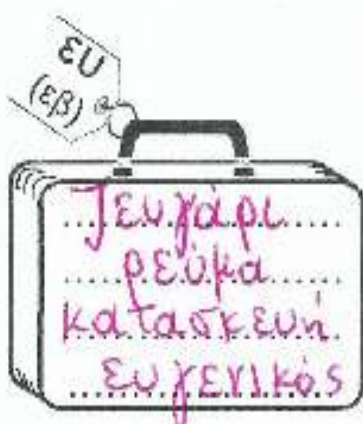 ευ
(εβ)
Ζευγάρι
ρεύμα
κατασκευή
ευγενικός